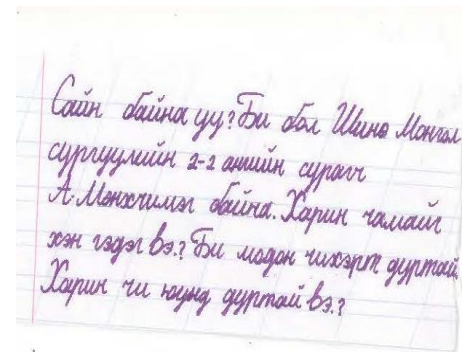 Сайн байна уу? Би бол Шинэ Монгол
сургуулийн 2-2 ангийн сурагч
А. Мөнхчимэг байна. Харин чамайг
хэн гэдэг вэ.? Би модон чихэрт дуртай.
Харин чи юунд дуртай вэ.?